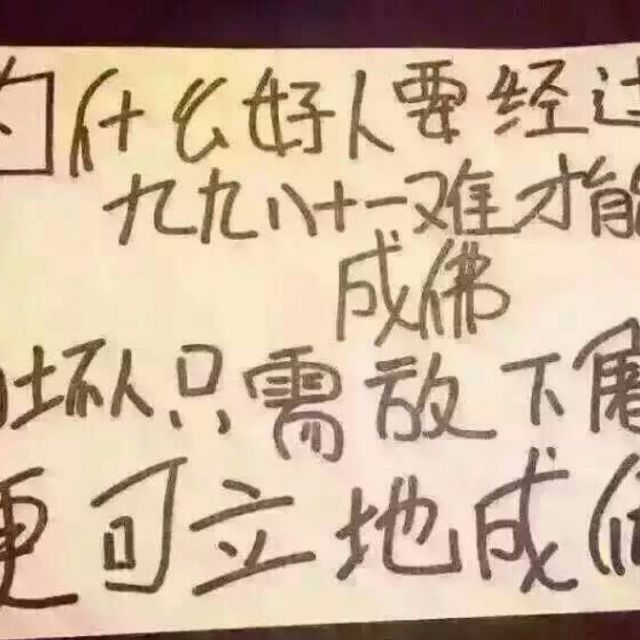 为什么好人要经过
九九八十一难才能
成佛
而坏人只需放下屠
便可立地成佛